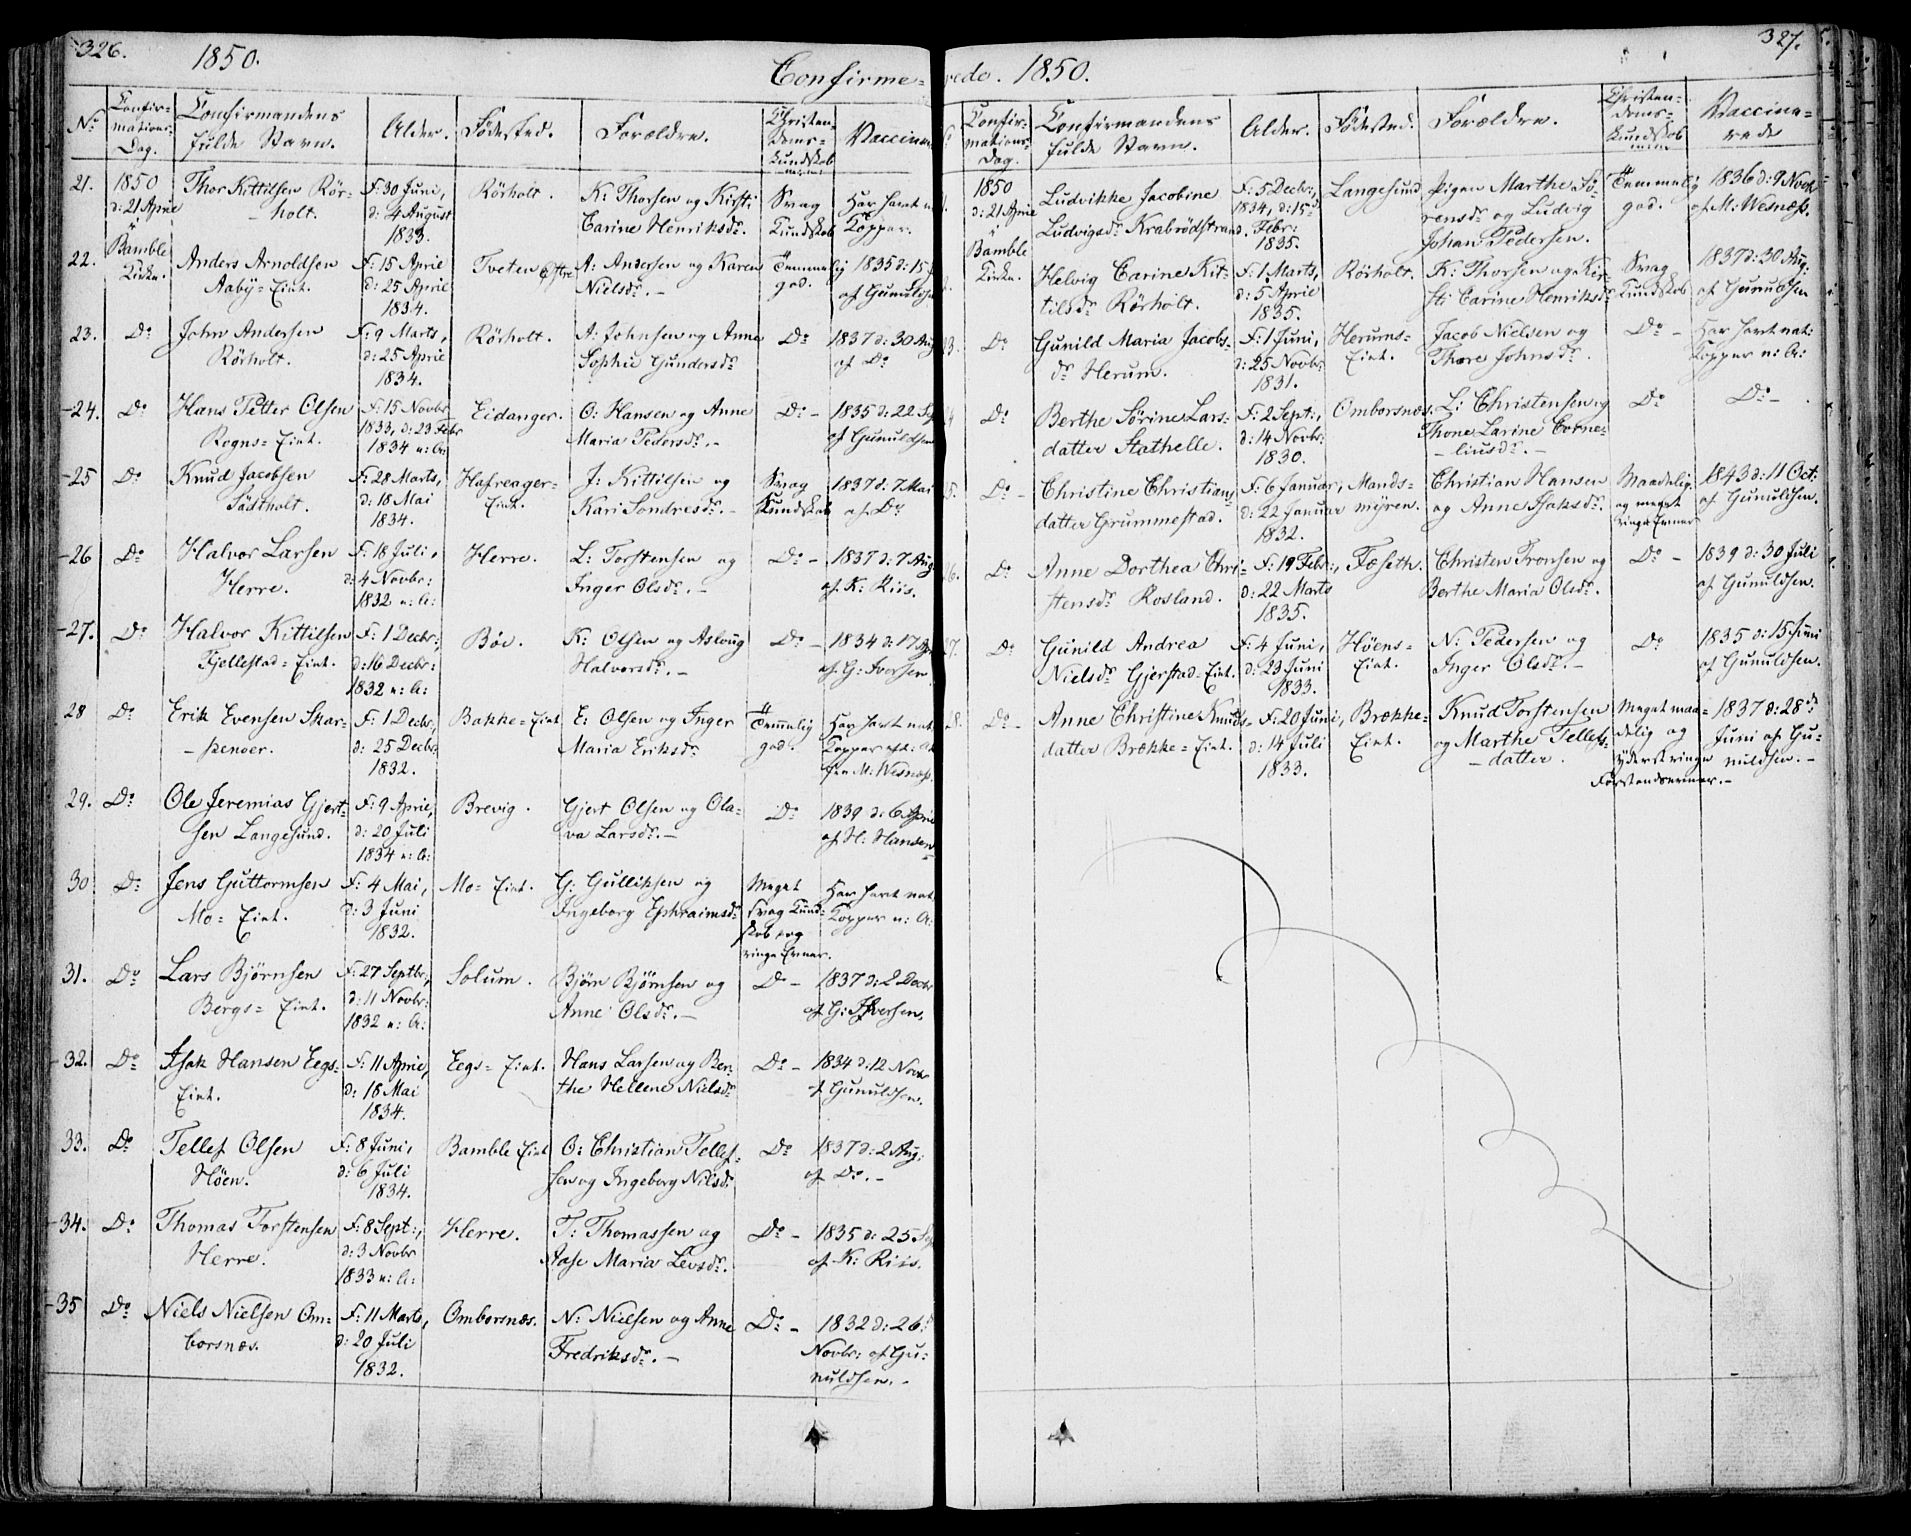 326.
1850.
Confirme-
No
Confir-
mations-
Dag.
Confirmandens
fulde Navn.
Alder.
Födested.
Forældre.
Christen-
doms-
kundskab
Vaccine
21.
1850
d: 21 April
Bamble
Kirke.
Thor Kittilsen Rör-
- holt.
F: 30 Juni,
d: 4 August
1833.
Rörholt.
K: Thorsen og Kirsti
Carine Henriksdr.
Svag
Kundskab
Har havt n
Kopper.
22.
Anders Arnoldsen
Aaby-Eiet.
F: 15 April
d: 25 April
1834.
Tveten
A: Andersen og Karen
Nielsdr. -
Temmelig
god.
1835 d: 15
af Gunuldsen
23.
Do
John Andersen
Rörholt.
F: 9 Marts,
d: 25 April
1834.
Rörholt.
A: Johnsen og Anne
Sophie Gundersdr
Do
1837 d: 30 Aug
af Do
24.
Do
Hans Petter Olsen
Rogns-Eiet.
F: 15 Novbr
1833, d: 23 Febr
1834 n: A:
Eidanger.
O: Hansen og Anne
Maria Pedersdr. -
Do -
1835 d: 22 Se
af Gunuldsen
25
Do
Knud Jacobsen
Sädtholt.
F: 28 Marts,
d: 18 Mai
1834.
Hafreager-
Eiet.
J: Kittilsen og
Kari Sondresdr. -
Svag
Kundskab
1837 d: 7 Mai
af Do
26
Do
Halvor Larsen
Herre.
F: 18 Juli,
d: 4 Novbr:
1832 n: A:
Herre.
L: Torstensen og
Inger Olsdr. -
Do -
1837 d: 7 Aug
af K: Riis.
27.
Do
Halvor Kittilsen
Fjellestad-Eiet.
F: 1 Decbr,
d: 16 Decbr:
1832 n: A:
Böe.
K: Olsen og Aslaug
Halvorsdr. -
Do -
1834 d: 17
af G: Iversen
28
Do
Erik Evensen Skar-
- penoer.
F: 1 Decbr,
d: 25 Decbr
1832.
Bakke-Eiet
E: Olsen og Inger
Maria Eriksdr
Temmelig
god.
Har havt nat
Kopper eft: At
fra M: Wesnæss.
29.
Do
Ole Jeremias Gjert-
sen Langesund.
F: 9 April,
d: 20 Juli
1834 n: A:
Brevig.
Gjert Olsen og Ola-
va Larsdr. -
Do
1839 d: 6 April
af H: Hansen
30
Do
Jens Guttormsen
Mo-Eiet.
F: 4 Mai,
d: 3 Juni
1832.
Mo-Eiet.
G: Gulliksen og
Ingeborg Ephraimsdr
Meget
svag Kund-
skab og
ringe Evner.
Har havt nat
Kopper n: A:
31.
Do
Lars Bjørnsen
Bergs-Eiet.
F: 27 Septbr,
d: 11 Novbr:
1832 n: A:
Solum.
Bjørn Bjørnsen og
Anne Olsdr. -
Do -
1837 d: 2 Decbr
af G: Iversen,
32.
Do
Isak Hansen Eegs-
Eiet.
F: 11 April,
d: 18 Mai
1834.
Eegs-Eiet.
Hans Larsen og Ber-
the Hellene Nielsdr
Do -
1834 d: 12 Novbr
af Gunuldsen.
33.
Do
Tellef Olsen
Höen.
F: 8 Juni,
d: 6 Juli
1834.
Bamble Eiet
O: Christian Tellef-
sen og Ingeborg Nilsdr
Do
1837 d: 2 Aug:
af Do. -
34.
Do
Thomas Torstensen
Herre.
F: 8 Sept:,
d: 3 Novbr
1833 n: A:
Herre.
T: Thomassen og
Aase Maria Levsdr.
Do -
1835 d: 25
af K: Riis.
35
Do
Niels Nielsen Om-
borsnæs.
F: 11 Marts,
d: 20 Juli
1832.
Omborsnæs.
N: Nielsen og Anne
Fredriksdr. -
Do -
1832 d: 26
Novbr: af Gu-
nuldsen. -
327.
rede. 1850.
Confir-
mations-
Dag.
Confirmandens
fulde Navn.
Alder.
Födested.
Forældre.
Christen-
doms-
kundskab
Vaccine-
rede
1850
d: 21 April
Bamble
Kirke.
Ludvikke Jacobine
Ludvigsdr Krabrödstrand
F: 5 Decbr,
1834, d: 15
Febr:
1835.
Langesund
Pigen Marthe Sö-
rensdr og Ludvig
Johan Pedersen.
Temmelig
god.
1836 d: 9 Novbr
af M: Wesnæss.
Helvig Carine Kit-
tilsdr Rörholt.
F: 1 Marts,
d: 5 April
1835.
Rörholt.
K: Thorsen og Kir-
sti Carine Henriksdr
Svag
Kundskab
1837 d: 30 Aug:
af Gunuldsen
23.
Do
Gunild Maria Jacobs-
dr Herum.
F: 1 Juni,
d: 25 Novbr:
1831.
Herums-
Eiet.
Jacob Nielsen og
Thore Johnsdr.
Do -
Har havt nat:
Kopper n: A:
24
Do
Berthe Sörine Lars-
datter Stathelle.
F: 2 Sept:,
d: 14 Novbr:
1830.
Omborsnæs.
L: Christensen og
Thone Larine Corne-
- liusdr. -
Do
Do -
25.
Do -
Christine Christian-
datter Grummestad.
F: 6 Januar,
d: 22 Januar
1832.
Mands-
myren.
Christian Hansen
og Anne Isaksdr.
Maadelig.
og meget
ringe Evner
1843 d: 11 Oct:
af Gunuldsen.
26.
Do
Anne Dorthea Chri-
stensdr Rosland.
F: 19 Febr:,
d: 22 Marts
1835.
Foseth.
Christen Tronsen og
Berthe Maria Olsdr.
Do -
1839 d: 30 Juli
af Gunuldsen.
27.
Do
Gunild Andrea
Nielsdr Gjerstad-Eiet.
F: 4 Juni,
d: 23 Juni
1833.
Höens-
Eiet.
N: Pedersen og
Inger Olsdr. -
Do
1835 d: 15 Juni
af Gunuldsen.
28.
Do -
Anne Christine Knuds-
datter Brække-Eiet.
F: 20 Juni,
d: 14 Juli
1833.
Brække-
Eiet.
Knud Torstensen
og Marthe Tellefs-
- datter.
Meget maa-
delig og
yderst ringe
Forstandsevner. -
1837 d: 28de
Juni af Gu-
nuldsen. -